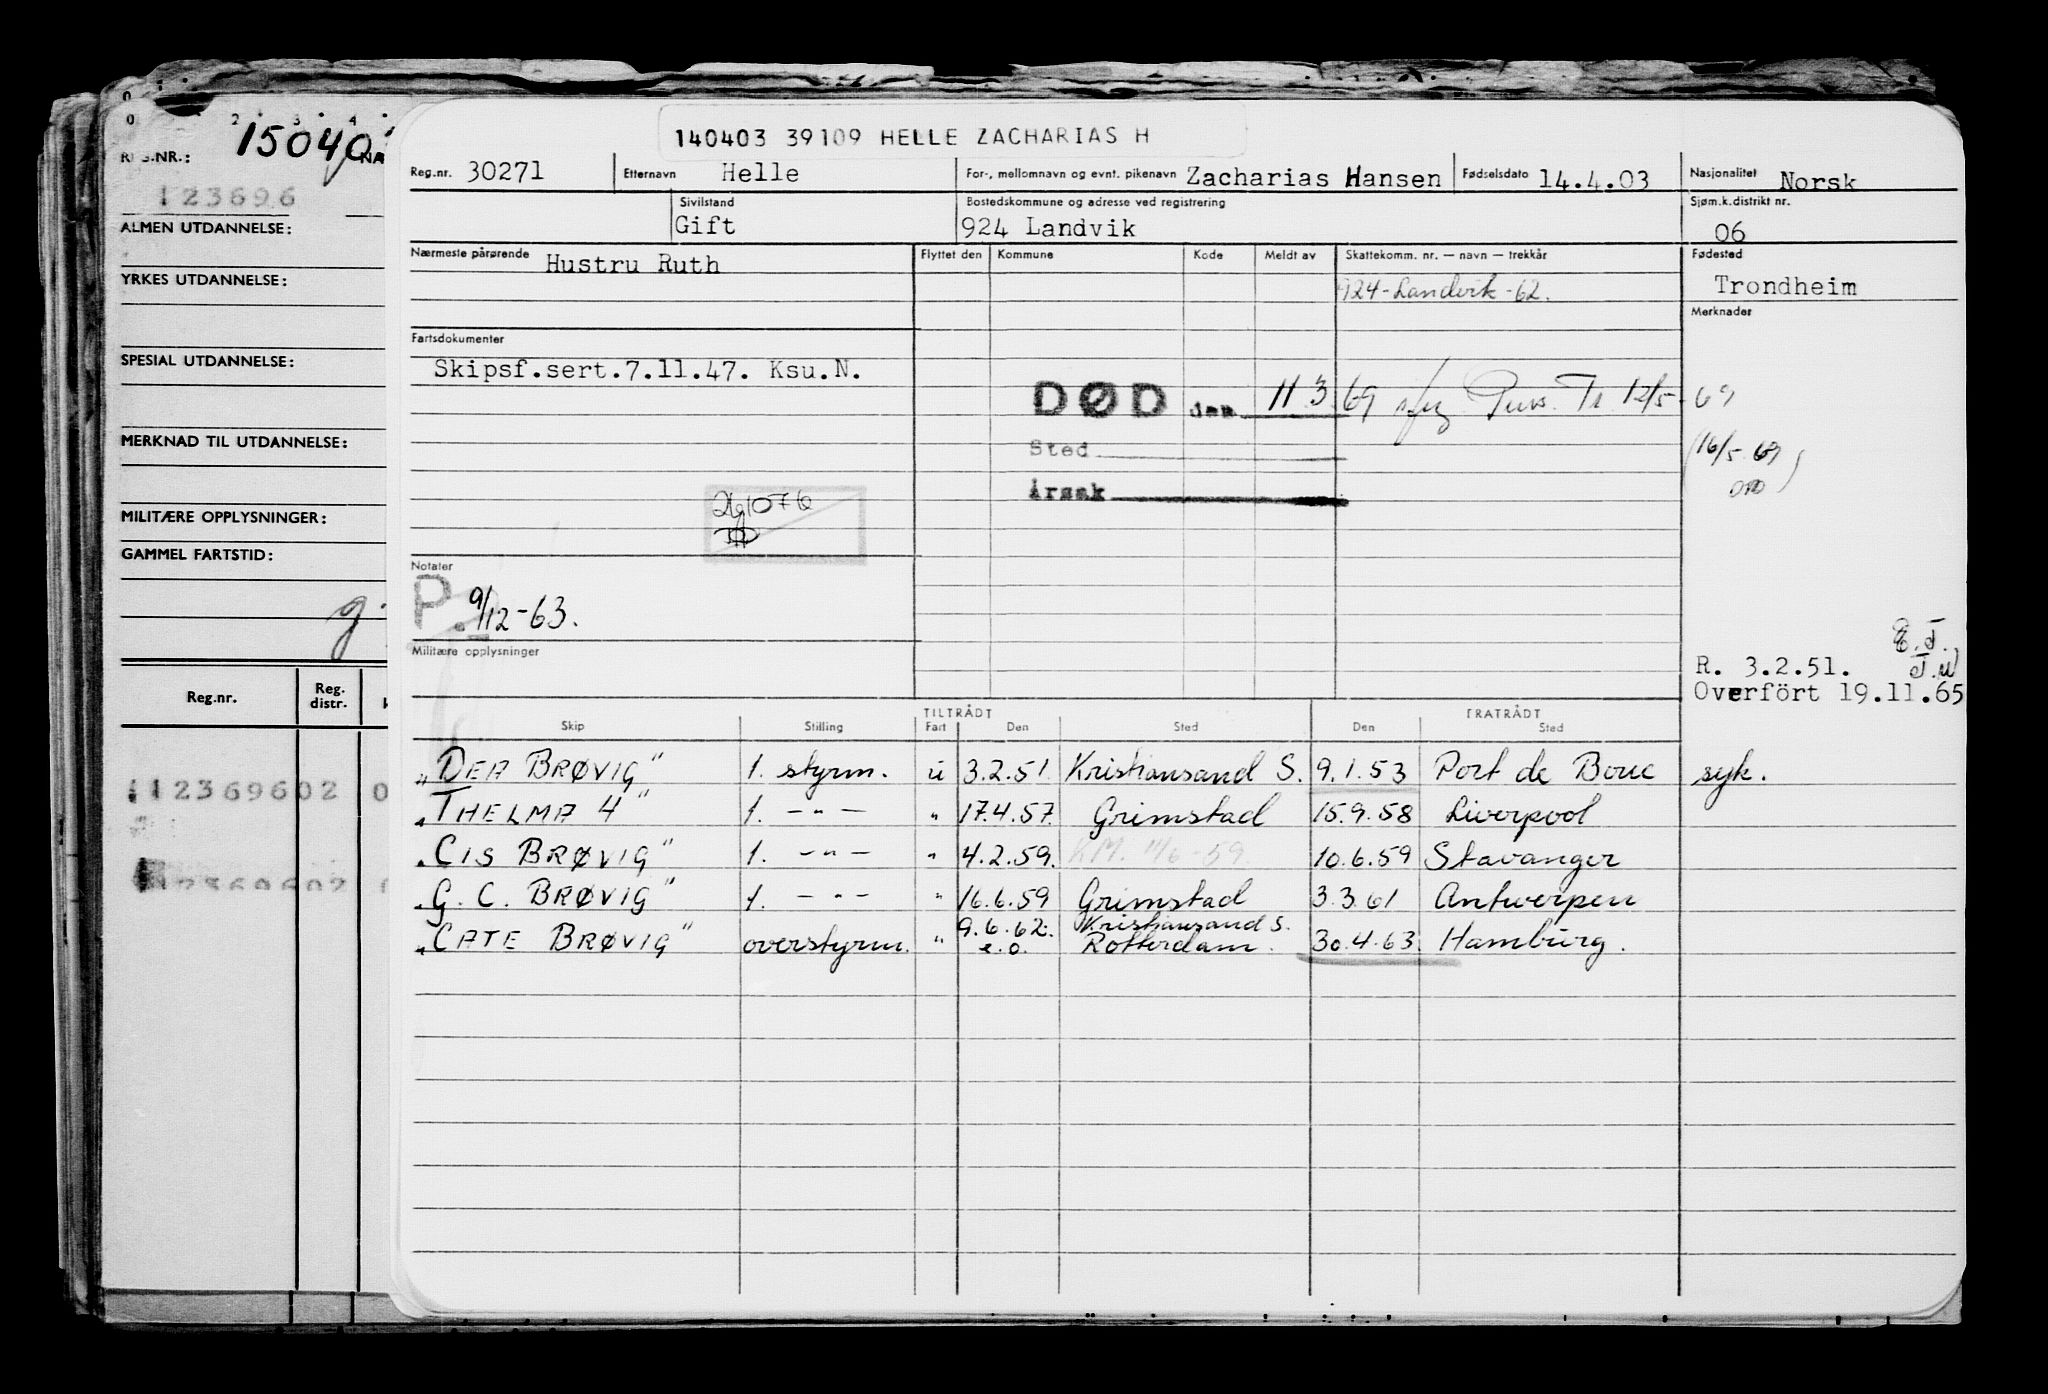 140403 39109 HELLE ZACHARIAS H
Reg.nr. 30271 Etternavn Helle For-, mellomnavn og evnt. pikenavn Zacharias Hansen Fødselsdato 14.4.03 Nasjonalitet Norsk
Sivilstand Gift Bostedskommune og adresse ved registrering 924 Landvik Sjøm.k.distrikt nr. 06
Nærmeste pårørende Hustru Ruth Flyttet den Kommune Kode Meldt av Skattekomm. nr. — navn — trekkår Fødested
924-Landvik-62. Trondheim
Merknader
Fartsdokumenter
Skipsf.sert.7.11.47. Ksu.N.
DØD den 11 3 69 Tr. 12/5- 69
Sted
(16/5 69)
Årsak
Notater
P. 9/12-63.
Militære opplysninger
R. 3.2.51.
Overfört 19.11.65
TILTRÅDT FRATRÅDT
Skip Stilling Fart Den Sted Den Sted
"DEA BRØVIG" 1. styrm. u 3.2.51. Kristiansand S. 9.1.53 Port de Bouc syk.
"THELMA 4" 1. -"- " 17.4.57. Grimstad 15.9.58 Liverpool
"CIS BRØVIG" 1. -"- " 4.2.59. KM. 11/6-59 10.6.59 Stavanger
"G. C. BRØVIG" 1. -"- " 16.6.59 Grimstad 3.3.61 Antwerpen
"CATE BRØVIG" overstyrm. " 9.6.62. Kristiansand S. 30.4.63. Hamburg.
e.o. Rotterdam.
REG.NR.: 15040 NA
123696
ALMEN UTDANNELSE:
YRKES UTDANNELSE:
SPESIAL UTDANNELSE:
MERKNAD TIL UTDANNELSE:
MILITÆRE OPPLYSNINGER:
GAMMEL FARTSTID:
Reg.nr. Reg. distr.
112369602 0
12369602